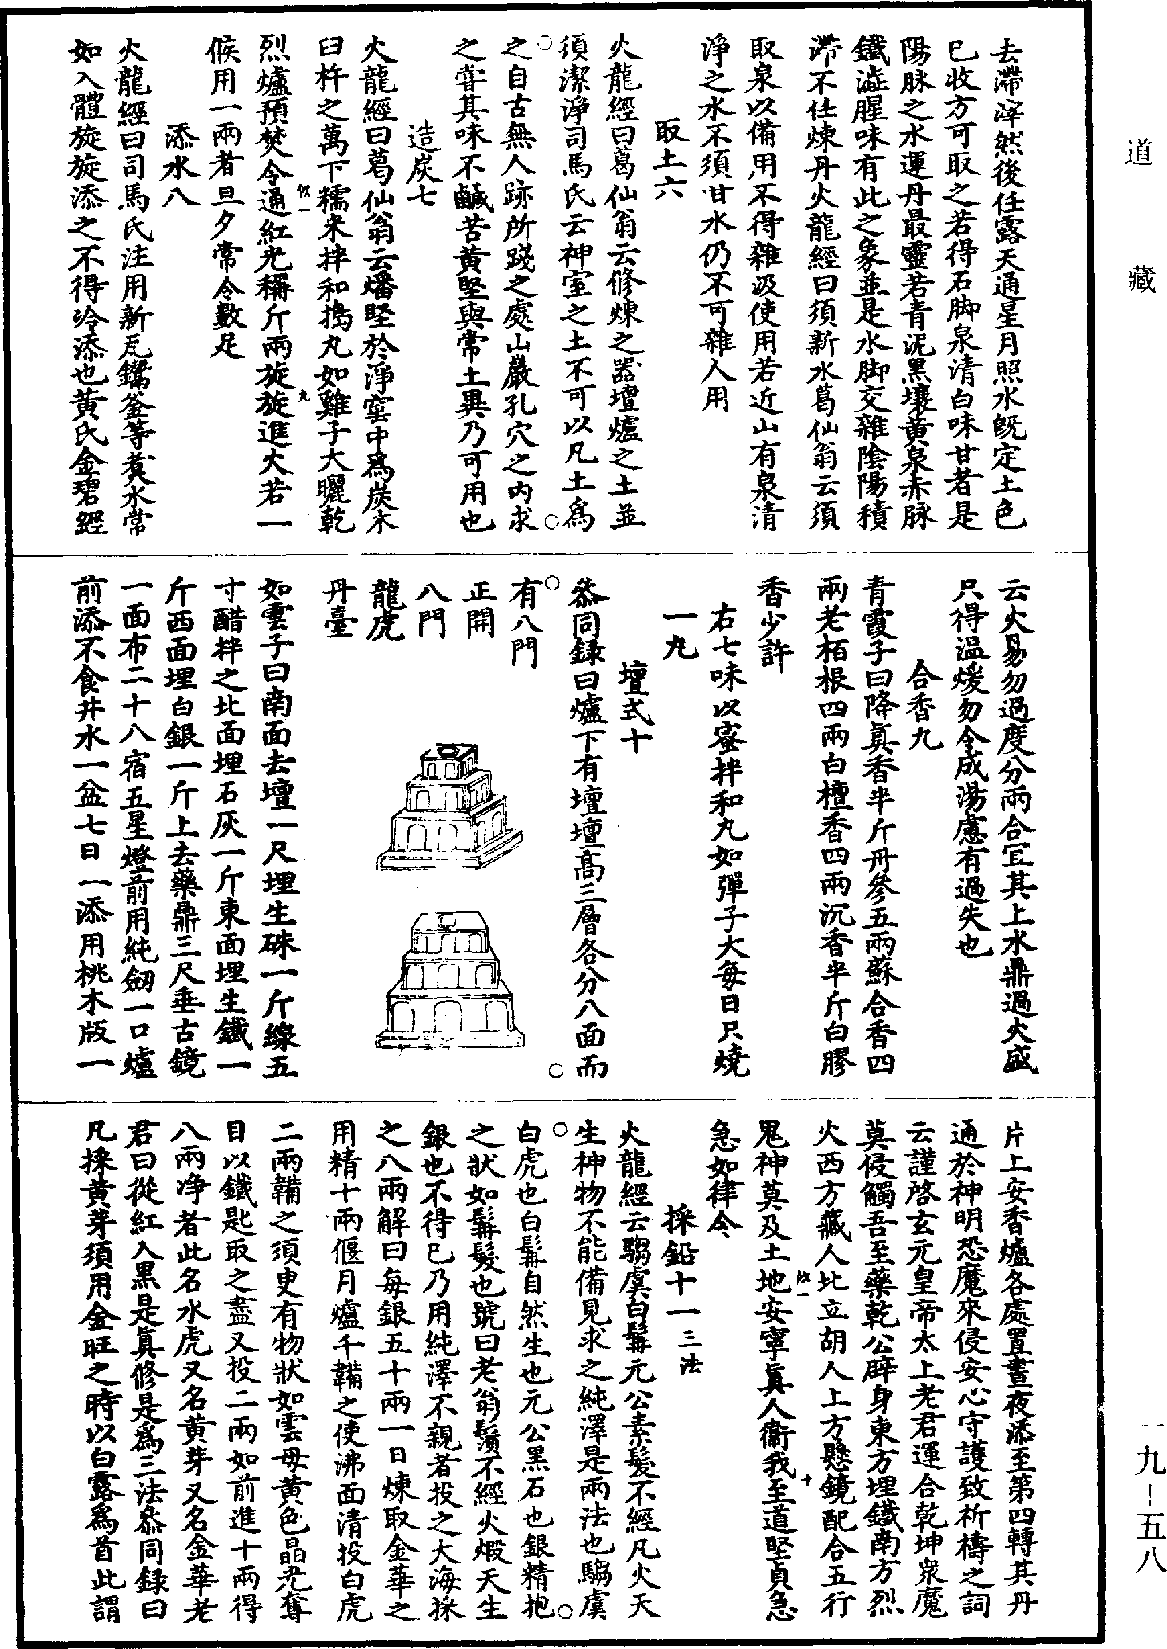 道藏
去滯滓然後任露天通星月照水既定土色
已收方可取之若得石脚泉清白味甘者是
陽脉之水運丹最靈若青泥黑壤黄泉赤脉
鐵澁腥味有此之象並是水脚交雜陰陽積
滯不任煉丹火龍經曰須新水葛仙翁云須
取泉以備用不得雜汲使用若近山有泉清
淨之水不須甘水仍不可雜人用
取土六
火龍經曰葛仙翁云修煉之器壇爐之土並
須潔淨司馬氏云神室之土不可以凡土爲
之自古無人跡所踐之處山巖孔穴之内求
之甞其味不鹹苦黄堅與常土異乃可用也
造炭七
火龍經曰葛仙翁云燔堅於淨室中爲炭木
臼杵之萬下糯米拌和擣丸如雞子大曬乾
烈爐預焚令通紅光稱斤兩旋旋進火若一
候用一兩者旦夕常令數足
添水八
火龍經曰司馬氏注用新瓦鐺釜等煑水常
如人體旋旋添之不得冷添也黄氏金碧經
云火易勿過度分兩合宜其上水鼎過火盛
只得温煖勿令成湯慮有過失也
合香九
青霞子曰降眞香半斤丹參五兩蘇合香四
兩老栢根四兩白檀香四兩沉香半斤白膠
香少許
右七味以蜜拌和丸如彈子大每日只燒
一丸
壇式十
叅同録曰爐下有壇壇高三層各分八面而
有八門
正開
八門
龍虎
丹臺
如雲子曰南面去壇一尺埋生硃一斤線五
寸醋拌之北面埋石灰一斤東面埋生鐵一
斤西面埋白銀一斤上去藥鼎三尺垂古鏡
一面布二十八宿五星燈前用純劒一口爐
前添不食井水一盆七日一添用桃木版一
片上安香爐各處置晝夜添至第四轉其丹
通於神明恐魔來侵安心守護致祈禱之詞
云謹啓玄元皇帝太上老君運合乾坤衆魔
莫侵觸吾至藥乾公辟身東方埋鐵南方烈
火西方藏人北立胡人上方懸鏡配合五行
鬼神莫及土地安寧眞人衞我至道堅貞急
急如律令
採鉛十一三法
火龍經云騶虞白鬅元公素髮不經凡火天
生神物不能備見求之純澤是兩法也騶虞
白虎也白鬅自然生也元公黑石也銀精抱
之狀如鬅髮也號曰老翁鬚不經火煆天生
銀也不得已乃用純澤不親者投之大海採
之八兩解曰每銀五十兩一日煉取金華之
用精十兩偃月爐千鞴之使沸面清投白虎
二兩鞴之須臾有物狀如雲母黄色晶光奪
目以鐵匙取之盡又投二兩如前進十兩得
八兩净者此名水虎又名黄芽又名金華老
君曰從紅入黑是眞修是爲三法叅同録曰
凡採黄芽須用金旺之時以白露爲首此謂
一九-五八